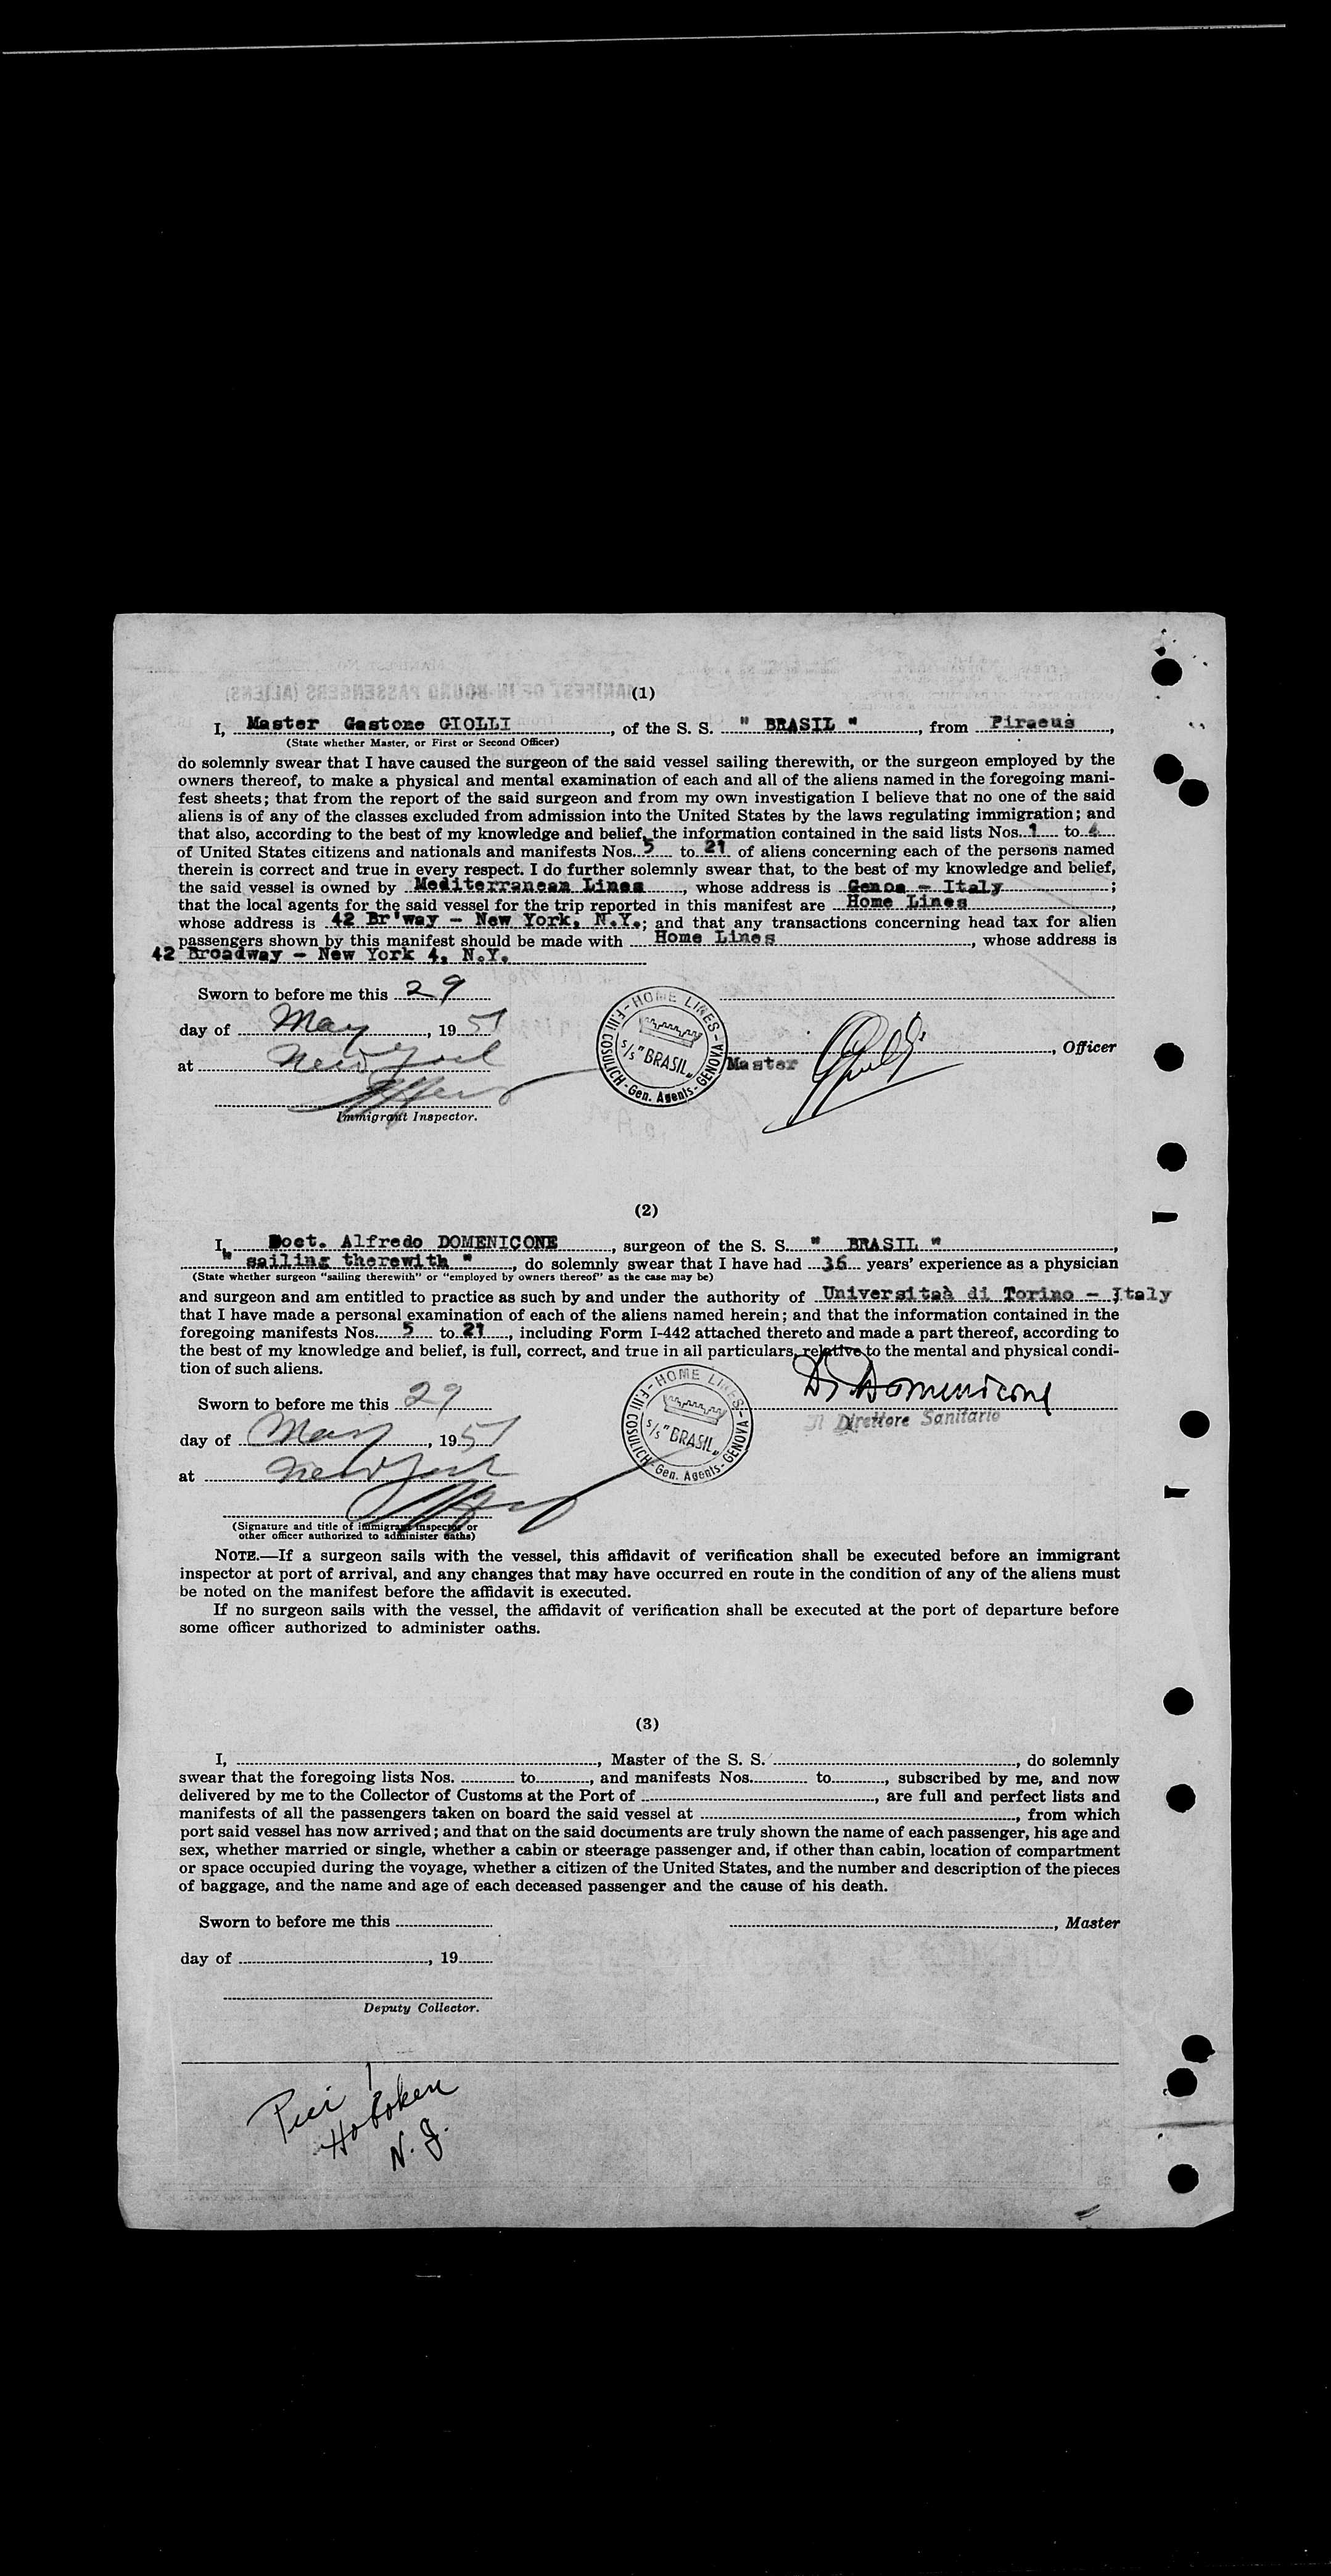 (1)
I, Master Gastone GIOLLI, of the S. S. " BRASIL ", from Piraeus,
(State whether Master, or First or Second Officer)
do solemnly swear that I have caused the surgeon of the said vessel sailing therewith, or the surgeon employed by the
owners thereof, to make a physical and mental examination of each and all of the aliens named in the foregoing mani-
fest sheets; that from the report of the said surgeon and from my own investigation I believe that no one of the said
aliens is of any of the classes excluded from admission into the United States by the laws regulating immigration; and
that also, according to the best of my knowledge and belief, the information contained in the said lists Nos. 1 to 4
of United States citizens and nationals and manifests Nos. 5 to 21 of aliens concerning each of the persons named
therein is correct and true in every respect. I do further solemnly swear that, to the best of my knowledge and belief,
the said vessel is owned by Mediterranean Lines, whose address is Genoa - Italy;
that the local agents for the said vessel for the trip reported in this manifest are Home Lines,
whose address is 42 Br'way - New York, N.Y.; and that any transactions concerning head tax for alien
passengers shown by this manifest should be made with Home Lines, whose address is
42 Broadway - New York 4, N.Y.
Sworn to before me this 29
day of May, 1951
at New York
HOME LINES - GENOVA - Gen. Agents - F.lli COSULICH
S/S "BRASIL"
Master, Officer
Immigrant Inspector.
(2)
I, Doct. Alfredo DOMENICONE, surgeon of the S. S. " BRASIL ",
" sailing therewith ", do solemnly swear that I have had 36 years' experience as a physician
(State whether surgeon "sailing therewith" or "employed by owners thereof" as the case may be)
and surgeon and am entitled to practice as such by and under the authority of Universitaà di Torino - Italy
that I have made a personal examination of each of the aliens named herein; and that the information contained in the
foregoing manifests Nos. 5 to 21, including Form I-442 attached thereto and made a part thereof, according to
the best of my knowledge and belief, is full, correct, and true in all particulars, relative to the mental and physical condi-
tion of such aliens.
Dr Domenicone
Il Direttore Sanitario
Sworn to before me this 29
day of May, 1951
at New York
HOME LINES - GENOVA - Gen. Agents - F.lli COSULICH
S/S "BRASIL"
(Signature and title of immigrant inspector or
other officer authorized to administer oaths)
NOTE.—If a surgeon sails with the vessel, this affidavit of verification shall be executed before an immigrant
inspector at port of arrival, and any changes that may have occurred en route in the condition of any of the aliens must
be noted on the manifest before the affidavit is executed.
If no surgeon sails with the vessel, the affidavit of verification shall be executed at the port of departure before
some officer authorized to administer oaths.
(3)
I, , Master of the S. S. , do solemnly
swear that the foregoing lists Nos. to , and manifests Nos. to , subscribed by me, and now
delivered by me to the Collector of Customs at the Port of , are full and perfect lists and
manifests of all the passengers taken on board the said vessel at , from which
port said vessel has now arrived; and that on the said documents are truly shown the name of each passenger, his age and
sex, whether married or single, whether a cabin or steerage passenger and, if other than cabin, location of compartment
or space occupied during the voyage, whether a citizen of the United States, and the number and description of the pieces
of baggage, and the name and age of each deceased passenger and the cause of his death.
Sworn to before me this , Master
day of , 19
Deputy Collector.
Pier 1
Hoboken
N. J.